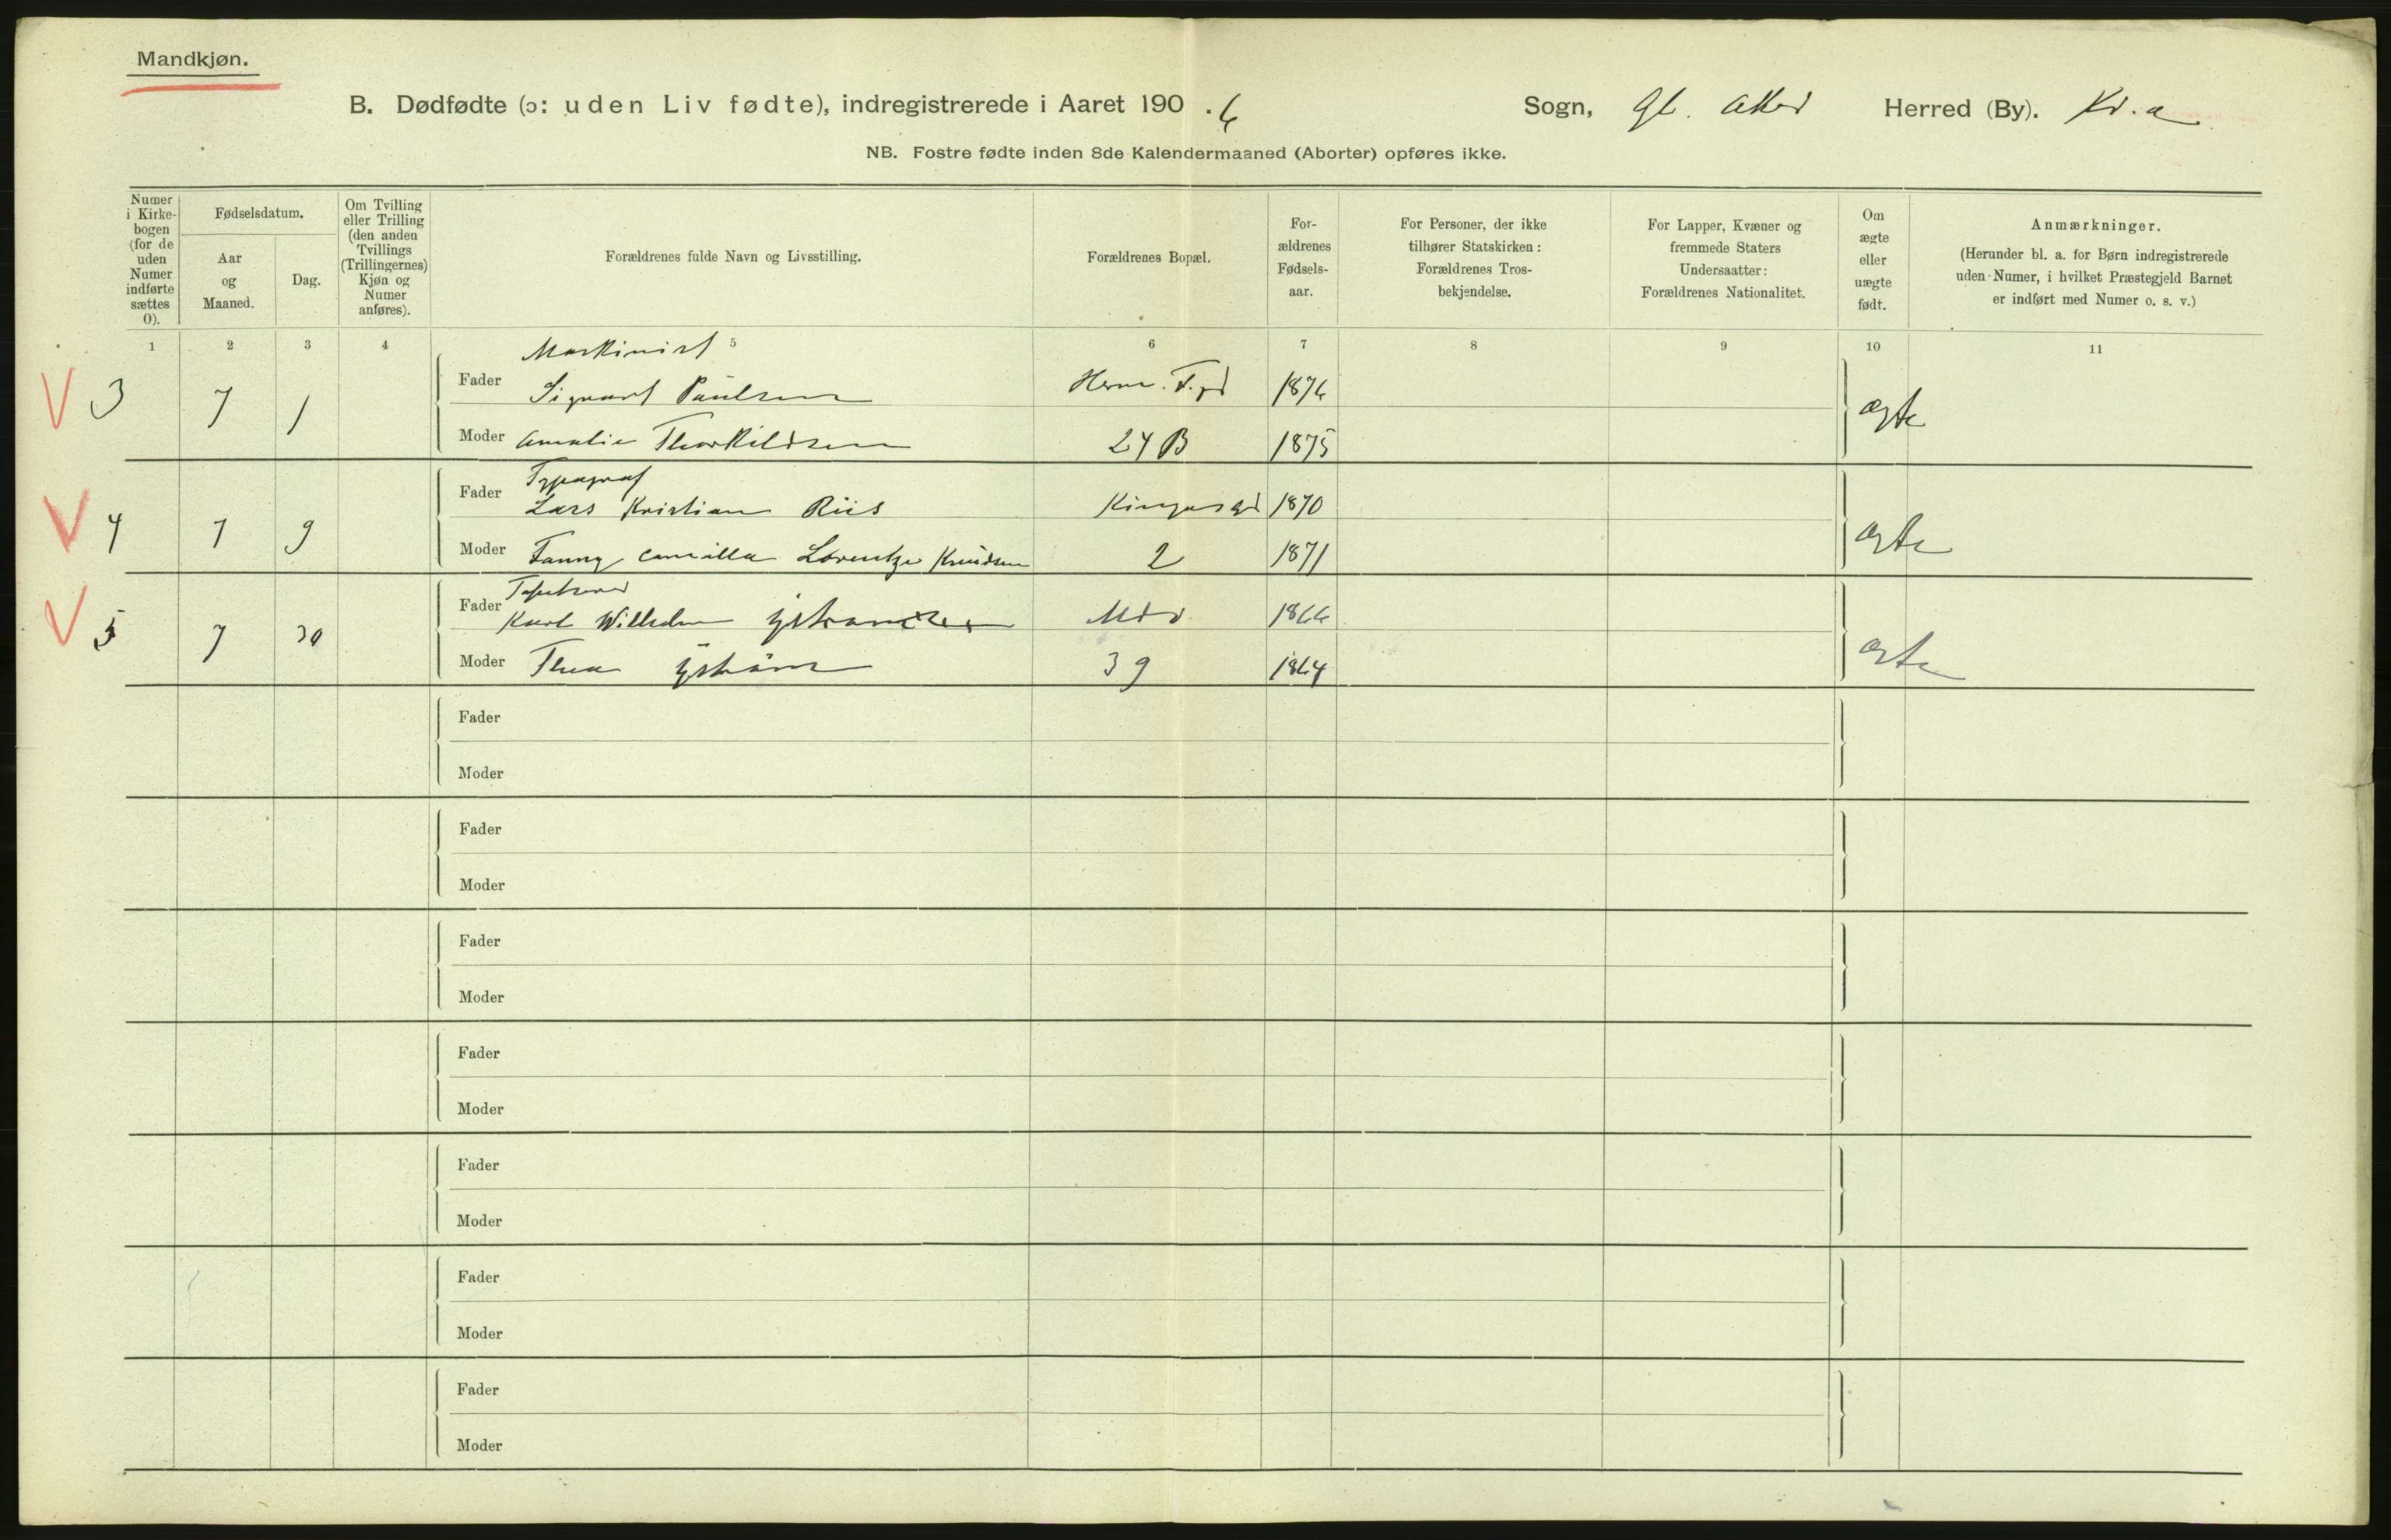 Mandkjøn.
B. Dødfødte (ɔ: uden Liv fødte), indregistrerede i Aaret 190.6
Sogn, Gl. Aker Herred (By). Kr.a
NB. Fostre fødte inden 8de Kalendermaaned (Aborter) opføres ikke.
Numer i Kirke-bogen (for de uden Numer indførte sættes 0).
Fødselsdatum.
Aar og Maaned.
Dag.
Om Tvilling eller Trilling (den anden Tvillings (Trillingernes) Kjøn og Numer anføres).
Forældrenes fulde Navn og Livsstilling.
Forældrenes Bopæl.
For-ældrenes Fødsels-aar.
For Personer, der ikke tilhører Statskirken: Forældrenes Tros-bekjendelse.
For Lapper, Kvæner og fremmede Staters Undersaatter: Forældrenes Nationalitet.
Om ægte eller uægte født.
Anmærkninger.
(Herunder bl. a. for Børn indregistrerede uden Numer, i hvilket Præstegjeld Barnet er indført med Numer o. s. v.)
1 2 3 4 5 6 7 8 9 10 11
Maskinist
V 3 7 1 Fader Sigvart Paulsen Herm. F. gd 1876 ægte
Moder Amalie Thorkildsen 24 B 1875
Typograf
V 4 7 9 Fader Lars Kristian Riis Kingosgd 1870 ægte
Moder Fanny Camilla Lorentze Knudsen 2 1871
Tapetserer
V 5 7 30 Fader Karl Wilhelm 1866 ægte
Moder Thea 39 1864
Fader
Moder
Fader
Moder
Fader
Moder
Fader
Moder
Fader
Moder
Fader
Moder
Fader
Moder